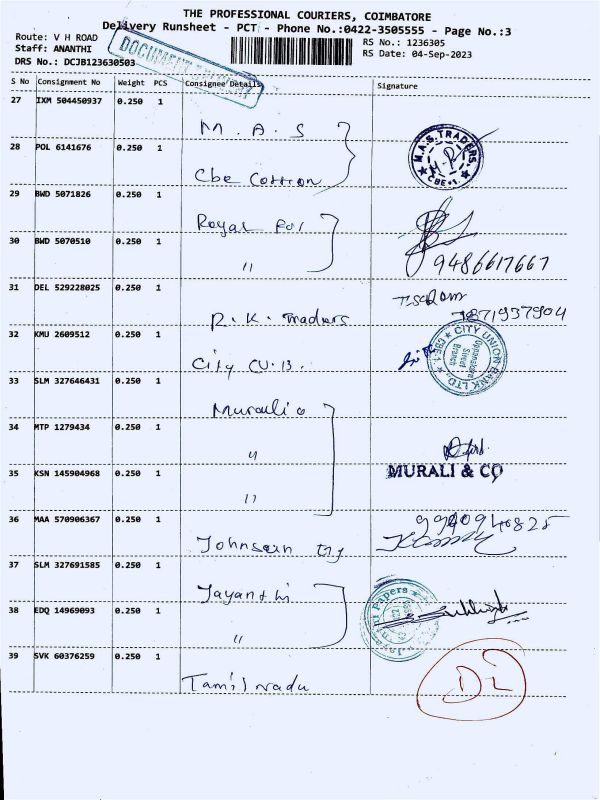 THE PROFESSIONAL COURIERS, COIMBATORE
Delivery Runsheet - PCT - Phone No.:0422-3505555 - Page No.:3
Route: V H ROAD
Staff: ANANTHI
RS No.: 1236305
RS Date: 04-Sep-2023
DRS No.: DCJB123630503
DOCUMENT
S No Consignment No Weight PCS Consignee Details Signature
27 IXM 504450937 0.250 1 M. A. S
28 POL 6141676 0.250 1 Cbe Cotton
M.A.S. TRADERS. CBE-1.
29 BWD 5071826 0.250 1 Royal For
30 BWD 5070510 0.250 1 "
9486617667
31 DEL 529228025 0.250 1 R. K. Traders
7871937904
32 KMU 2609512 0.250 1 City C.U.B.
CITY UNION BANK LTD., CBE-1.
Branch
33 SLM 327646431 0.250 1 Murali &
34 MTP 1279434 0.250 1 "
35 KSN 145904968 0.250 1 "
MURALI & CO
36 MAA 570906367 0.250 1 Johnson
37 SLM 327691585 0.250 1 Jayanthi
38 EDQ 14969093 0.250 1 "
Jayanthi Papers
39 SVK 60376259 0.250 1 Tamil nadu
DL